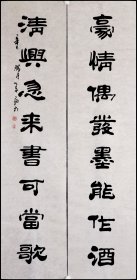 豪情偶發墨能作酒
清興急来書可當歌